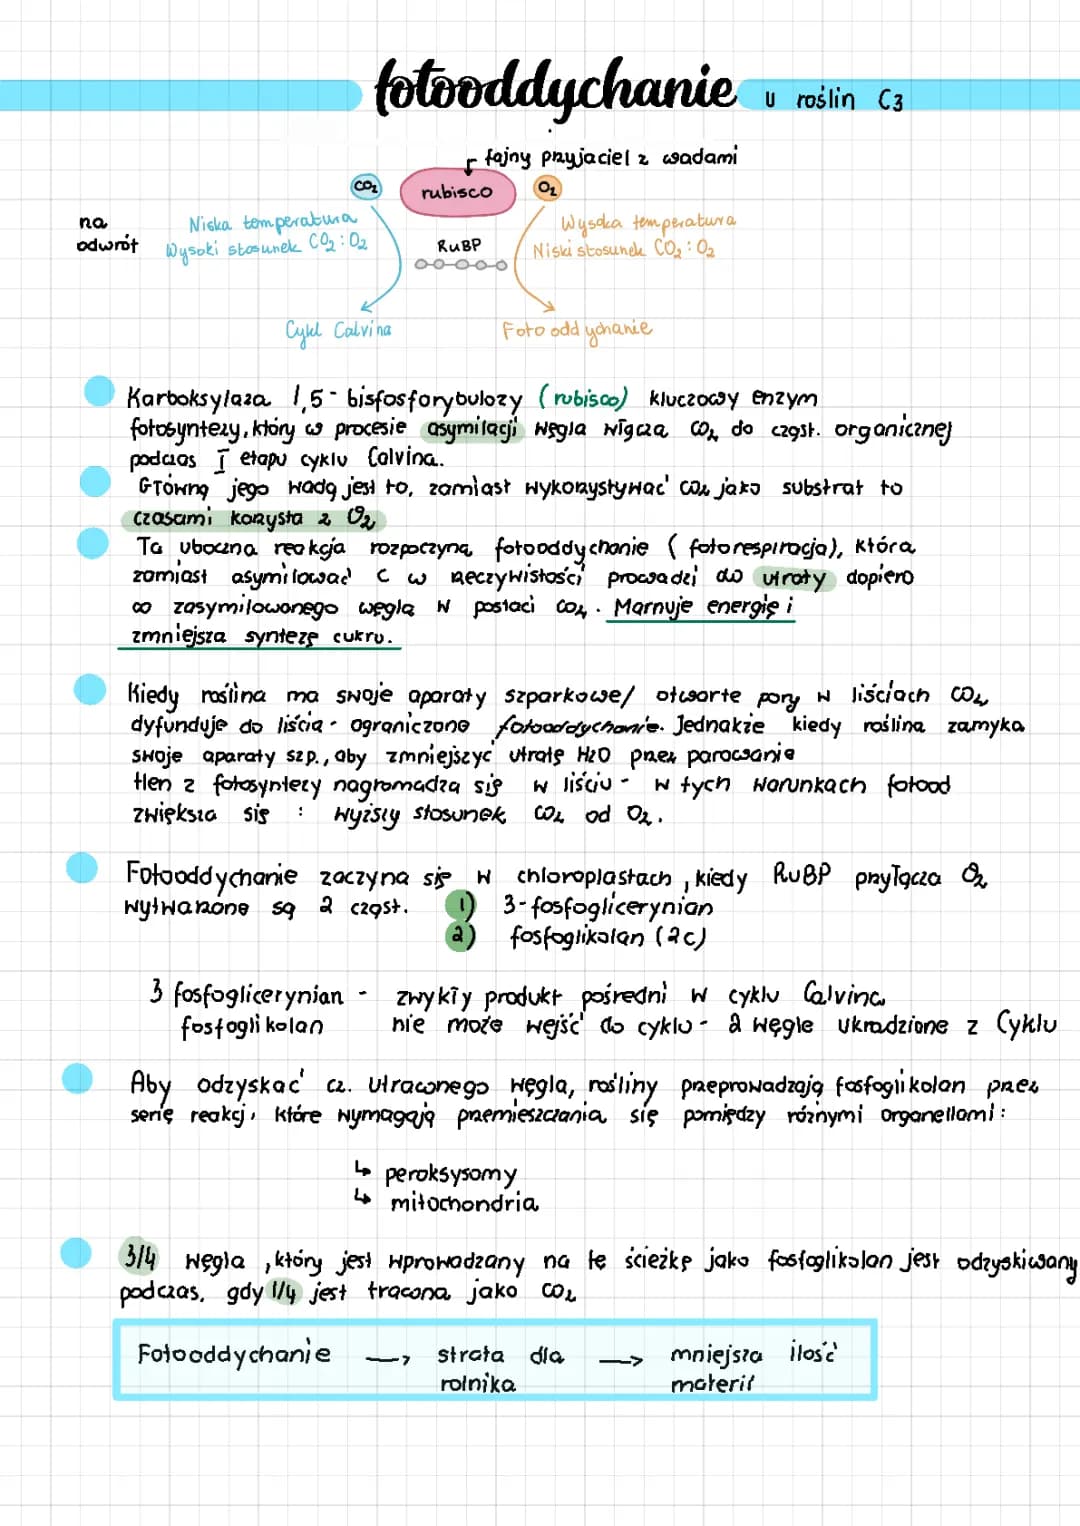 fotooddychanie u roślin C3
fajny przyjaciel z wadami
CO₂ rubisco O₂
na odwrót
Niska temperatura
Wysoki stosunek CO₂:O₂
RuBP
Wysoka temperatura
Niski stosunek CO₂:O₂
Cykl Calvina
Fotooddychanie
Karboksylaza 1,5-bisfosforybulozy (rubisco) kluczowy enzym
fotosyntezy, który w procesie asymilacji węgla włącza CO₂ do cząst. organicznej
podczas I etapu cyklu Calvina.
Główną jego wadą jest to, zamiast wykorzystywać CO₂ jako substrat to
czasami korzysta z O₂
Ta uboczna reakcja rozpoczyna fotooddychanie (fotorespiracja), która
zamiast asymilować C w rzeczywistości prowadzi do utraty dopiero
co zasymilowanego węgla w postaci CO₂. Marnuje energię i
zmniejsza syntezę cukru.
Kiedy roślina ma swoje aparaty szparkowe/ otwarte pory w liściach CO₂
dyfunduje do liścia - ograniczone fotooddychanie. Jednakże kiedy roślina zamyka
swoje aparaty szp., aby zmniejszyć utratę H₂O przez parowanie
tlen z fotosyntezy nagromadza się w liściu - w tych warunkach fotood
zwiększa się : wyższy stosunek CO₂ od O₂.
Fotooddychanie zaczyna się w chloroplastach, kiedy RuBP przyłącza O₂
wytwarzane są 2 cząst. 1) 3-fosfoglicerynian
2) fosfoglikolan (2c)
3 fosfoglicerynian - zwykły produkt pośredni w cyklu Calvina
fosfoglikolan nie może wejść do cyklu - 2 węgle ukradzione z Cyklu
Aby odzyskać cz. utraconego węgla, rośliny przeprowadzają fosfoglikolan przez
serię reakcji, które wymagają przemieszczania się pomiędzy różnymi organellami:
↳ peroksysomy
↳ mitochondria
3/4 węgla, który jest wprowadzany na tę ścieżkę jako fosfoglikolan jest odzyskiwany
podczas, gdy 1/4 jest tracona jako CO₂
Fotooddychanie → strata dla → mniejsza ilość
rolnika materii